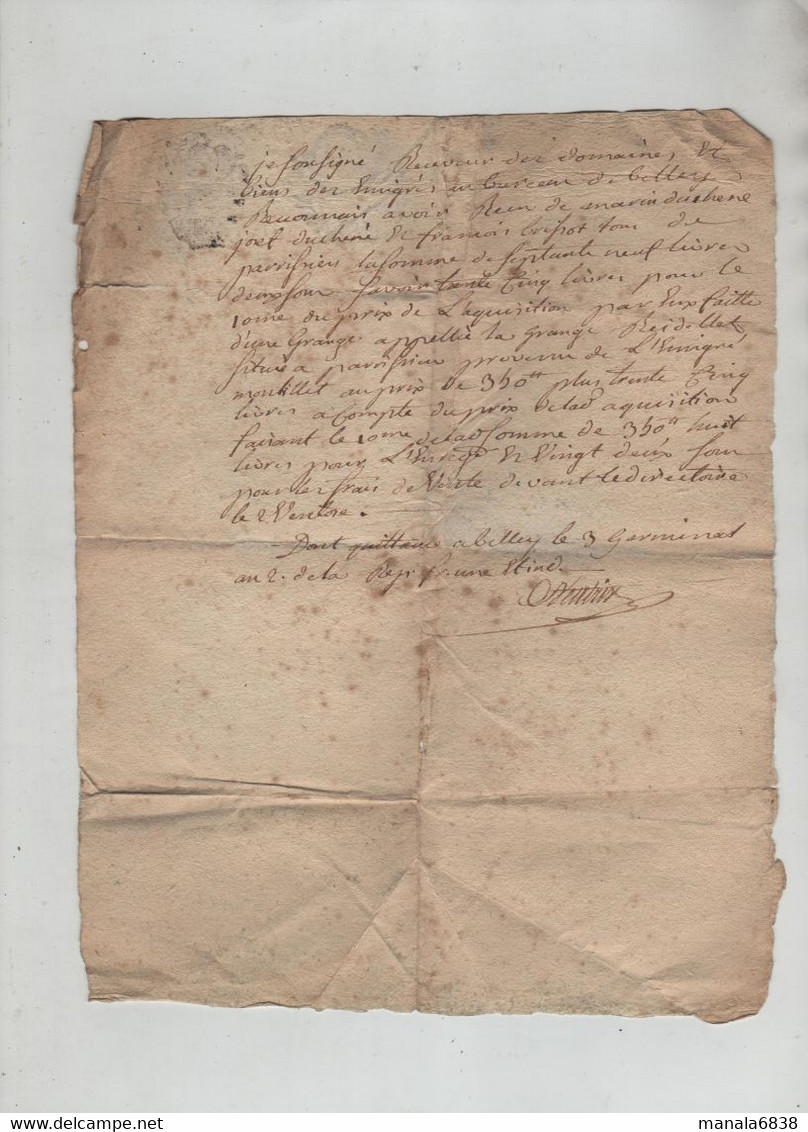 je soussigné Receveur des domaines, et
biens des Emigrés au bureau de belley
Reconnais avoir Recu de marin duchene
josef duchene et francois brepot tous de
parrisieu la somme de septante neuf livres
deux sour savoir trente Cinq livres pour le
10me du prix de L'aquisition par Eux faitte
d'une Grange appellée la Grange Reidellet
situé a parrisieu provenu de L'Emigré
montillet au prix de 350tt plus trente Cinq
livres a Compte du prix de lad aquisition
faisant le 10me de lad somme de 350tt huit
livres pour L'Enreg et Vingt deux sour
pour les frais de Vente devant le directoire
le 2 Ventose.
Dont quittance a belley le 3 Germinal
an 2. de la Rep. fr. une et ind.
manala6838